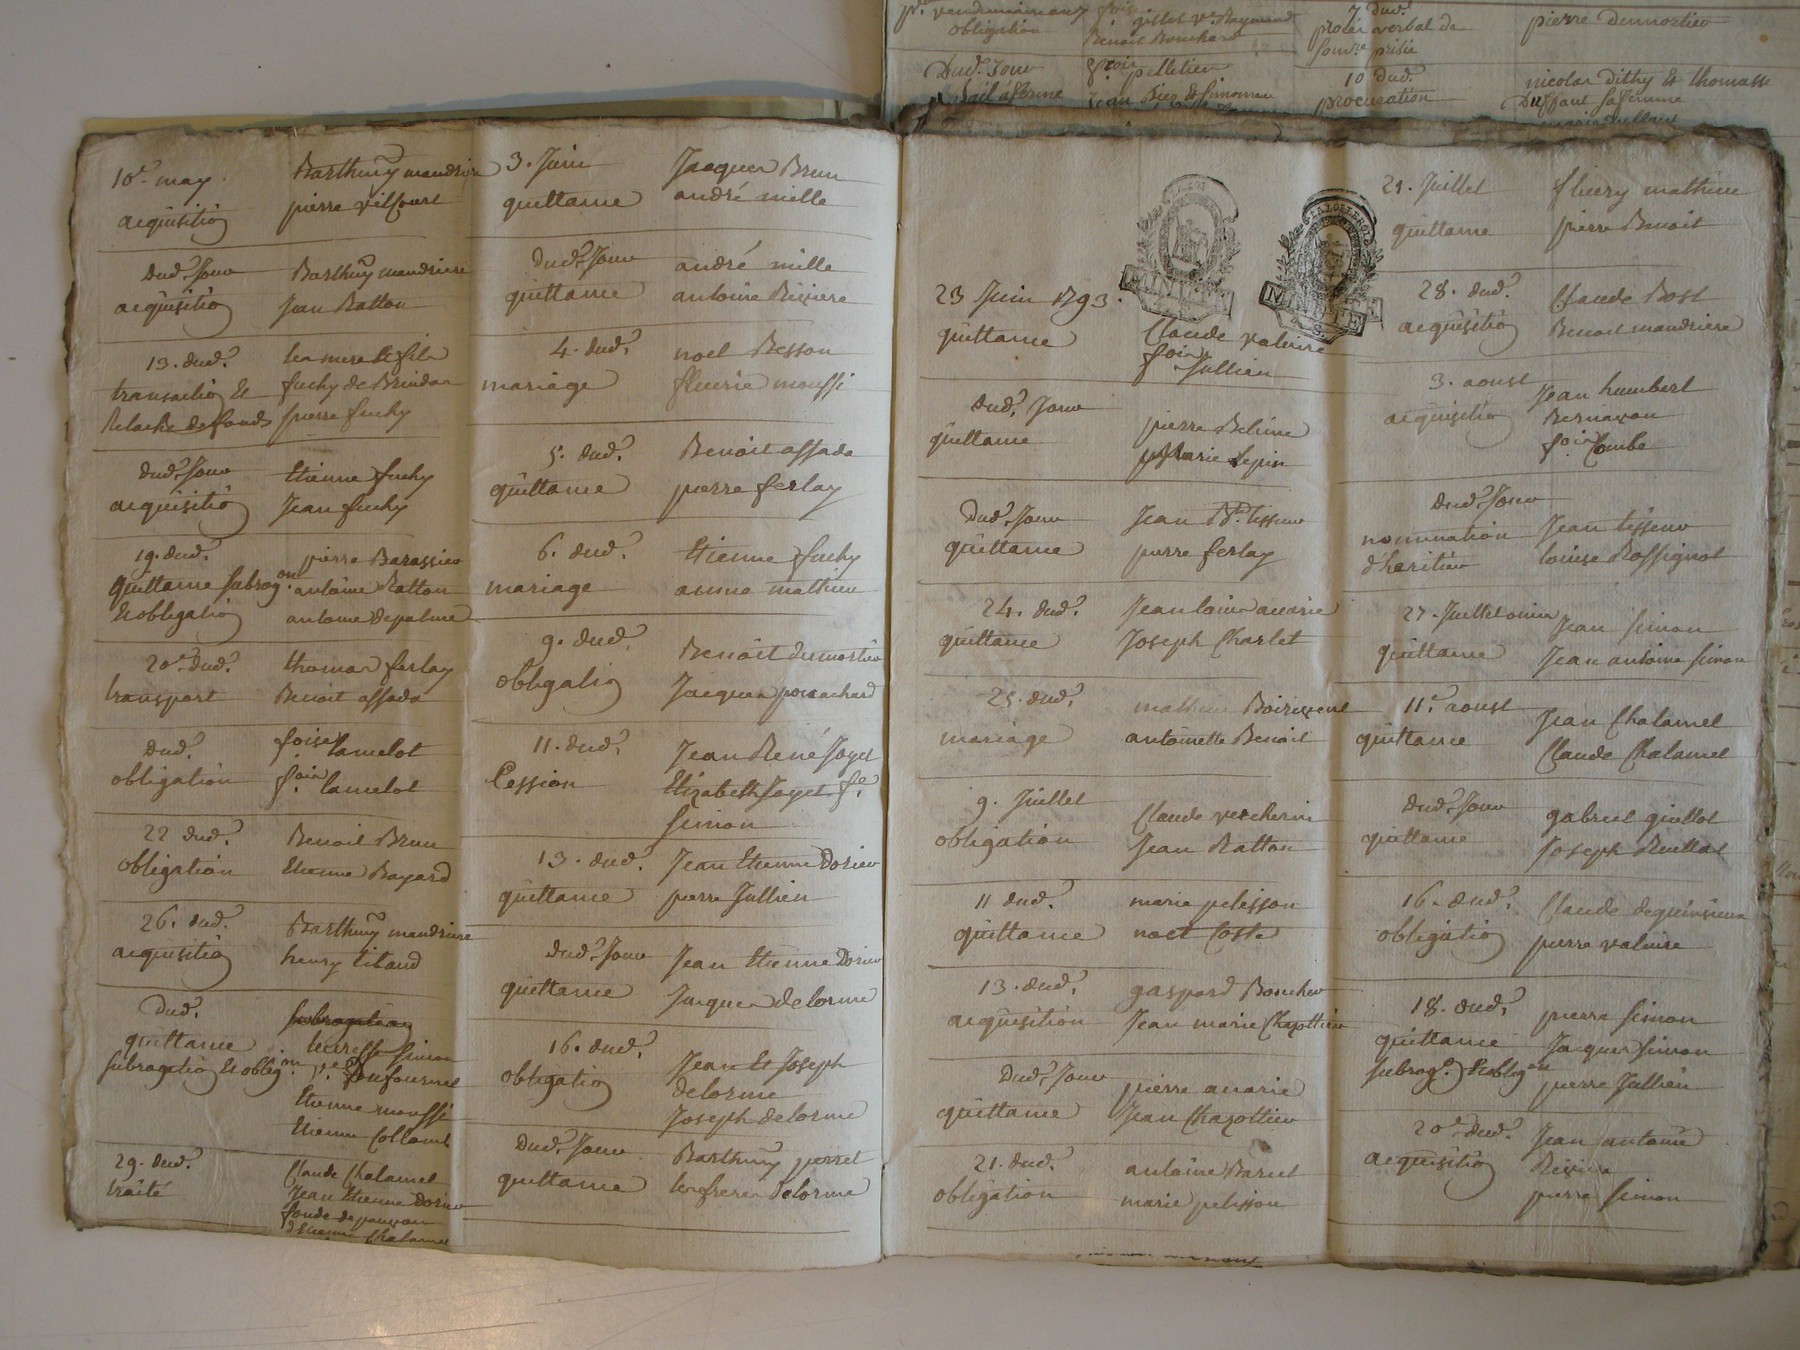 obligation
Benoit Bouchard
7 dud.
procès verbal de
pierre dumortier
Dud. Jour
pelletier
Bail à ferme
10 dud.
procuration
nicolas dithy et thomasse
sa femme
10e may
acquisitiõ
Barthmy mandriere
pierre vilcourt
dud. Jour
acquisitiõ
Barthmy mandriere
Jean Ratton
13. dud.
transactiõ et
Relache de fonds
les mere et fils
fuchy de Brindas
pierre fuchy
dud. Jour
acquisitiõ
Etienne fuchy
Jean fuchy
19. dud.
quittance subrogon
et obligatiõ
pierre Barassier
antoine Ratton
antoine depalme
20e dud.
transport
thomas ferlay
Benoit assada
dud.
obligation
foise Camelot
f.ois Camelot
22 dud.
obligation
Benoit Brun
Etienne Bayard
26. dud.
acquisitiõ
Barthmy mandriere
henry tibaud
Dud.
quittance
subrogatiõ et obligon
subrogation
simon
Etienne moussi
Etienne Collomb
29. dud.
traité
Claude Chalamel
Jean Etienne Dorier
fondé de pouvoir
d'Etienne Chalamel
3. Juin
quittance
Jacques Brun
andré mille
dud. Jour
quittance
andré mille
antoine Riviere
4. dud.
mariage
noel Besson
fleurie moussi
5. dud.
quittance
Benoit assada
pierre ferlay
6. dud.
mariage
Etienne fuchy
anne mathieu
9. dud.
obligatiõ
Benoit dumortier
Jacques ponachard
11. dud.
Cession
Jean René Joyet
Elizabeth Joyet fe.
simon
13. dud.
quittance
Jean Etienne Dorier
pierre Jullien
dud. Jour
quittance
Jean Etienne Dorier
Jacques delorme
16. dud.
obligatiõ
Jean et Joseph
delorme
Joseph delorme
Dud. Jour
quittance
Barthmy perret
les freres delorme
MINUTE
MINUTE
23 Juin 1793.
quittance
Claude valuire
f.ois Jullien
dud. Jour
quittance
pierre Belime
marie lepin
Dud. Jour
quittance
Jean Bte. tisseur
pierre ferlay
24. dud.
quittance
Jean louis anarie
Joseph Charlet
25. dud.
mariage
mathieu Boirivent
antoinette Benoit
9. Juillet
obligation
Claude vercherin
Jean Ratton
11 dud.
quittance
marie pelisson
noel Coste
13. dud.
acquisition
gaspard Boucher
Jean marie Chazottier
Dud. Jour
quittance
pierre anarie
Jean Chazottier
21. dud.
obligation
antoine Barret
marie pelisson
21. Juillet
quittance
fleury mathieu
pierre Benoit
28. dud.
acquisitiõ
Claude Bost
Benoit mandriere
3. aoust
acquisitiõ
Jean humbert
Bernaron
f.ois Combe
dud. Jour
nomination
d'heritier
Jean tisseur
louise Rossignol
27. Juillet omise
quittance
Jean simon
Jean antoine simon
11e aoust
quittance
Jean Chalamel
Claude Chalamel
dud. Jour
quittance
gabriel guillot
Joseph Ruillat
16. dud.
obligatiõ
Claude dequinsieux
pierre valuire
18. dud.
quittance
subrog.õ et obligon
pierre simon
Jacques simon
pierre Jullien
20e dud.
acquisitiõ
Jean antoine
Riviere
pierre simon